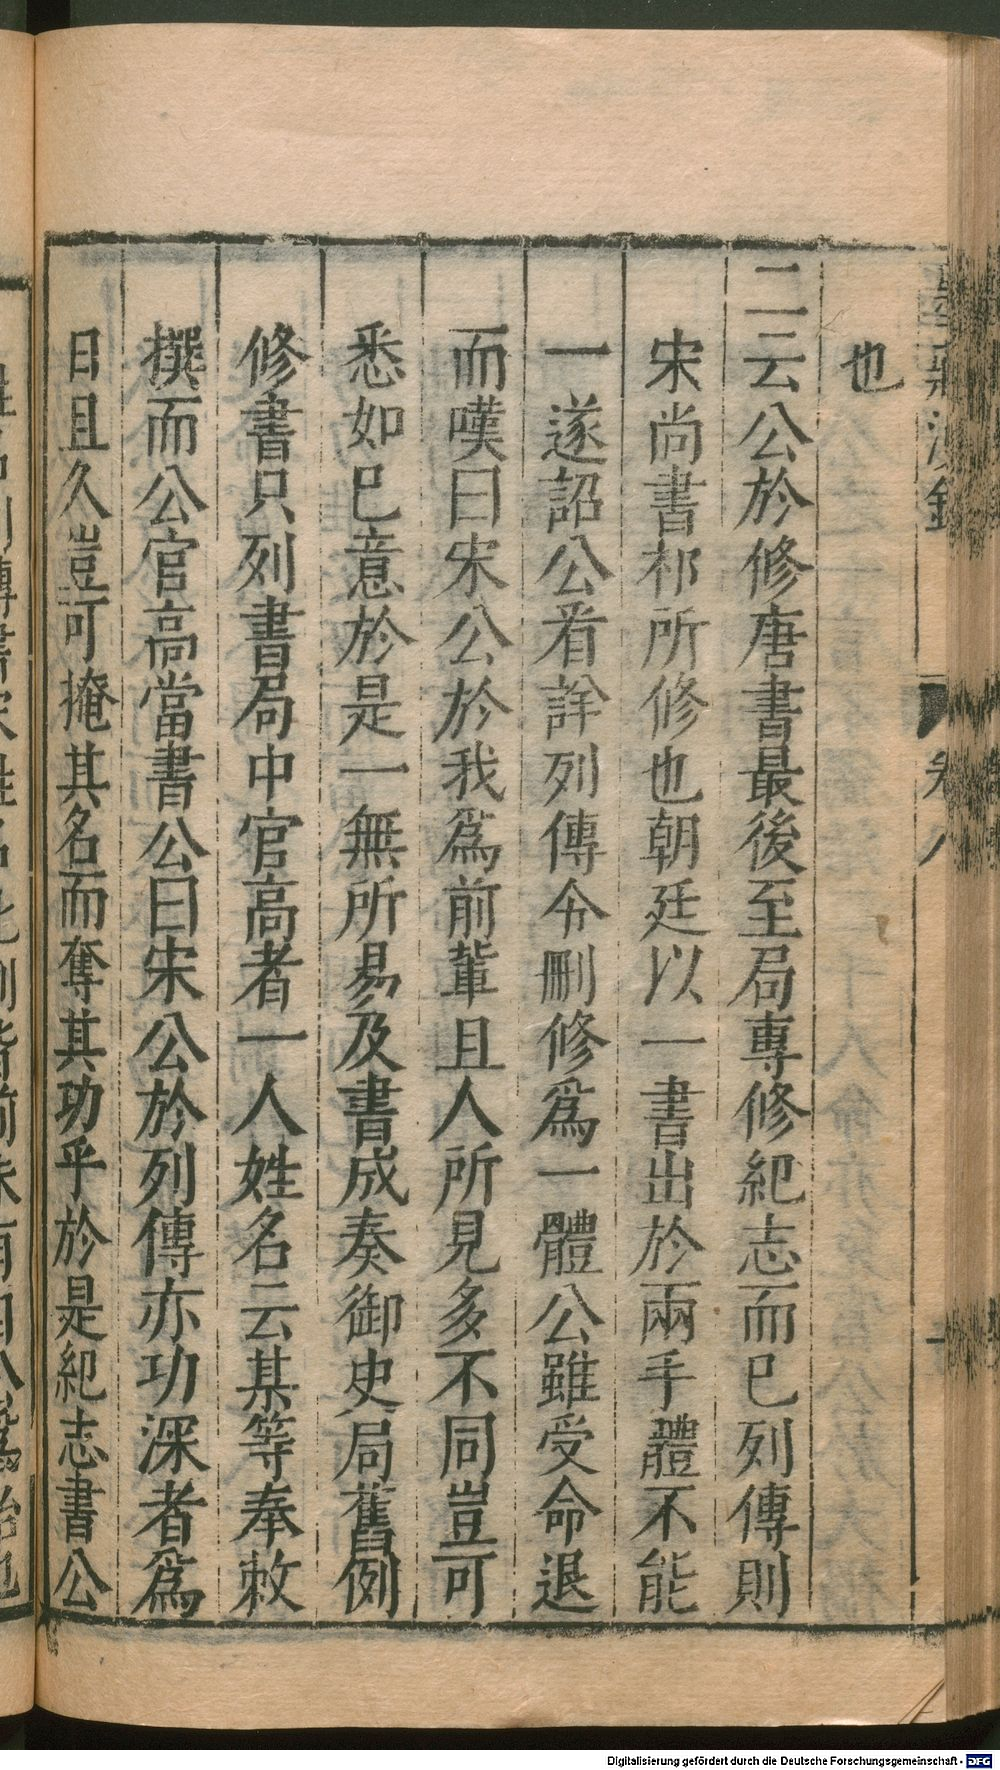 也
二云公於修唐書最後至局專修紀志而已列傳則
宋尚書祁所修也朝廷以一書出於兩手體不能
一遂詔公看詳列傳令刪修爲一體公雖受命退
而嘆曰宋公於我爲前輩且人所見多不同豈可
悉如已意於是一無所易及書成奏御史局舊例
修書只列書局中官高者一人姓名云某等奉敕
撰而公官高當書公曰宋公於列傳亦功深者爲
日且久豈可掩其名而奪其功乎於是紀志書公
卷八
Digitalisierung gefördert durch die Deutsche Forschungsgemeinschaft - DFG